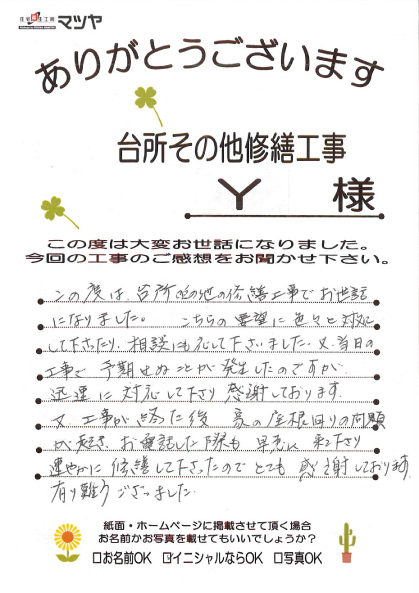 マツヤ
ありがとうございます
台所その他修繕工事
Y 様
この度は大変お世話になりました。
今回の工事のご感想をお聞かせ下さい。
この度は、台所その他の修繕工事でお世話
になりました。 こちらの要望に色々と対処
して下さったり、相談にも応じて下さいました。又、当日の
工事で予期せぬことが発生したのですが、
迅速に対応して下さり感謝しております。
又 工事が終った後 家の屋根回りの問題
が起き、お電話した際も早急に来て下さり
速やかに修繕して下さったのでとても感謝しております。
有り難うございました。
紙面・ホームページに掲載させて頂く場合
お名前かお写真を載せてもいいでしょうか?
□お名前OK ☑イニシャルならOK □写真OK